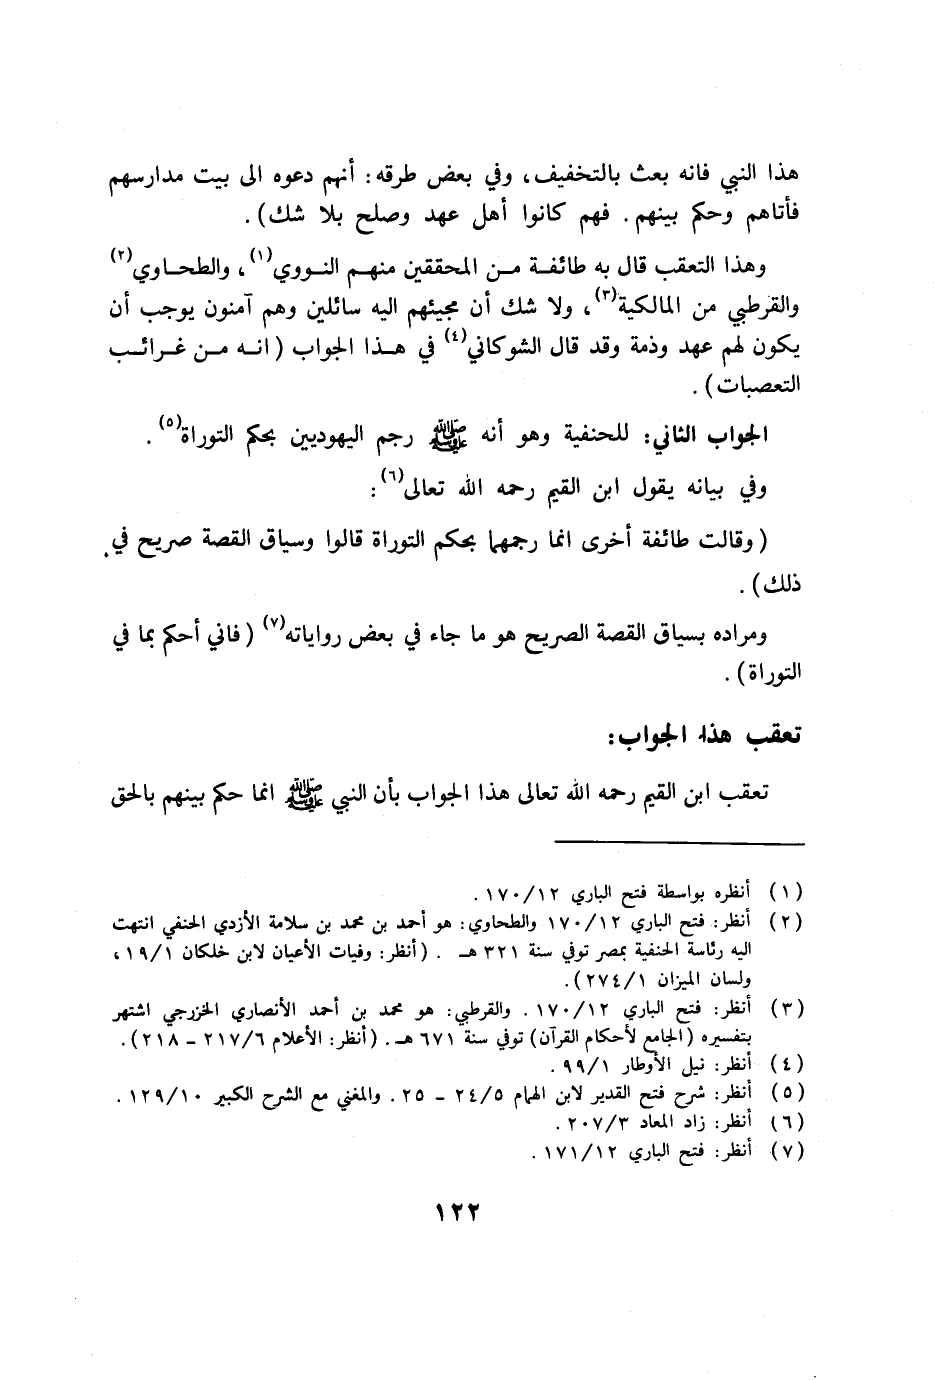 هذا النبي فانه بعث بالتخفيف، وفي بعض طرقه: أنهم دعوه الى بيت مدارسهم
فأتاهم وحكم بينهم. فهم كانوا أهل عهد وصلح بلا شك).
وهذا التعقب قال به طائفة من المحققين منهم النووي(١)، والطحاوي(٢)
والقرطبي من المالكية(٣)، ولا شك أن مجيئهم اليه سائلين وهم آمنون يوجب أن
يكون لهم عهد وذمة وقد قال الشوكاني(٤) في هذا الجواب (انه من غرائب
التعصبات).
الجواب الثاني: للحنفية وهو أنه ﷺ رجم اليهوديين بحكم التوراة(٥).
وفي بيانه يقول ابن القيم رحمه الله تعالى(٦):
(وقالت طائفة أخرى انما رجمهما بحكم التوراة قالوا وسياق القصة صريح في
ذلك).
ومراده بسياق القصة الصريح هو ما جاء في بعض رواياته(٧) (فاني أحكم بما في
التوراة).
تعقب هذا الجواب:
تعقب ابن القيم رحمه الله تعالى هذا الجواب بأن النبي ﷺ انما حكم بينهم بالحق
(١) أنظره بواسطة فتح الباري ١٧٠/١٢.
(٢) أنظر: فتح الباري ١٧٠/١٢ والطحاوي: هو أحمد بن محمد بن سلامة الأزدي الحنفي انتهت
اليه رئاسة الحنفية بمصر توفي سنة ٣٢١ هـ. (أنظر: وفيات الأعيان لابن خلكان ١٩/١،
ولسان الميزان ٢٧٤/١).
(٣) أنظر: فتح الباري ١٧٠/١٢. والقرطبي: هو محمد بن أحمد الأنصاري الخزرجي اشتهر
بتفسيره (الجامع لأحكام القرآن) توفي سنة ٦٧١ هـ. (أنظر: الأعلام ٢١٧/٦ - ٢١٨).
(٤) أنظر: نيل الأوطار ٩٩/١.
(٥) أنظر: شرح فتح القدير لابن الهمام ٢٤/٥ - ٢٥. والمغني مع الشرح الكبير ١٢٩/١٠.
(٦) أنظر: زاد المعاد ٢٠٧/٣.
(٧) أنظر: فتح الباري ١٧١/١٢.
١٢٢